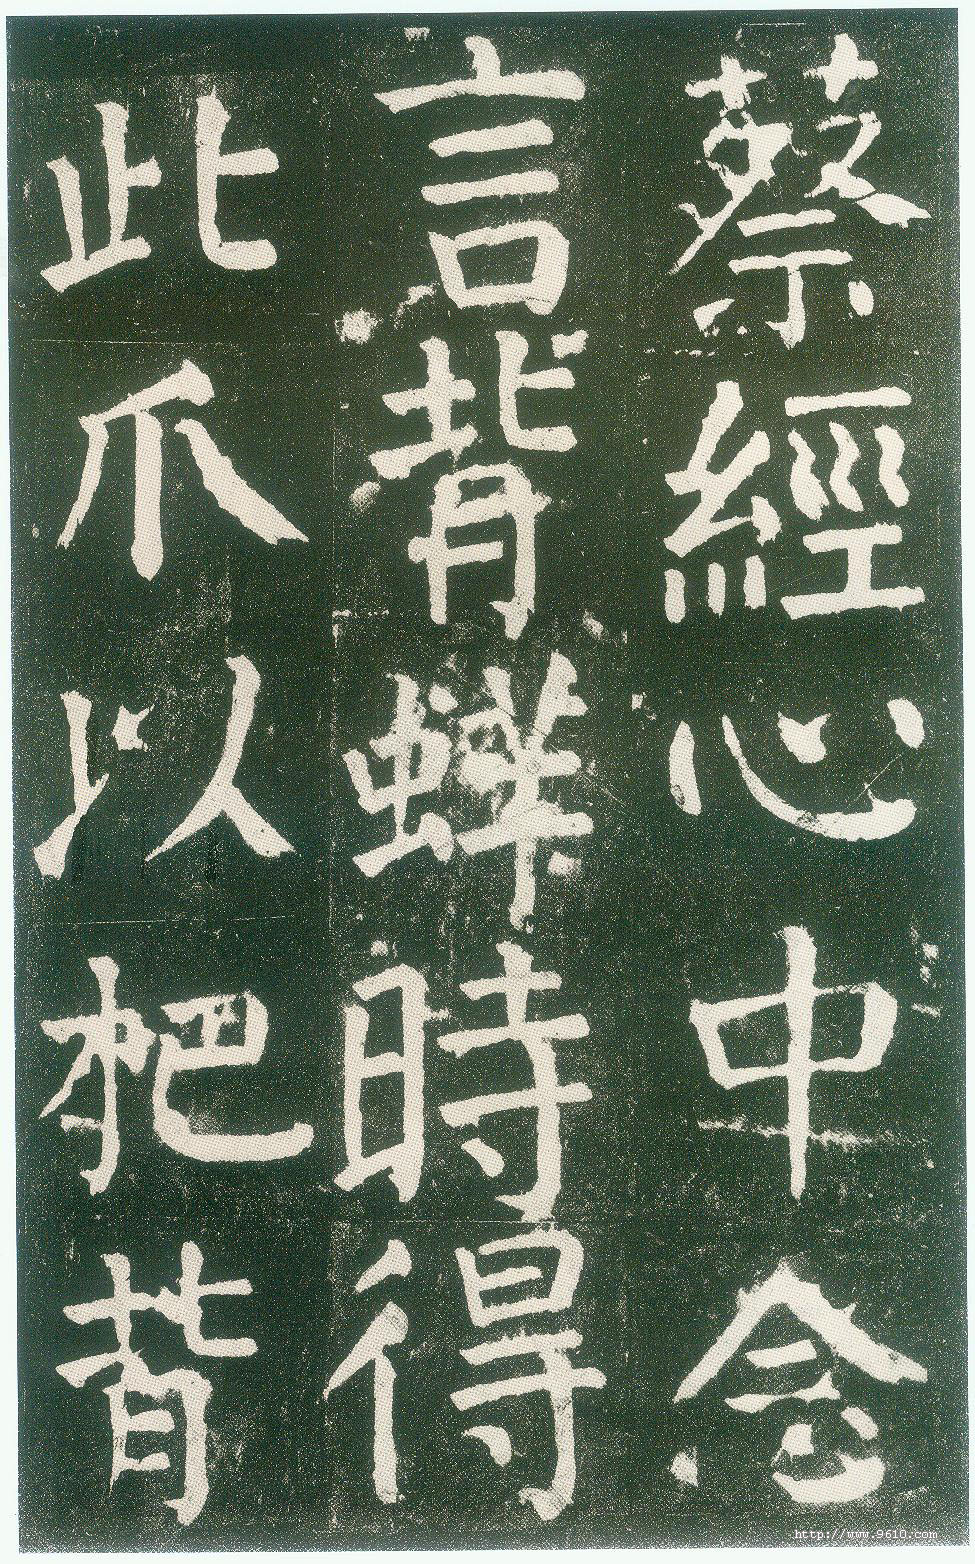 蔡經心中念
言背蛘時得
此爪以把背
http://www.9610.com